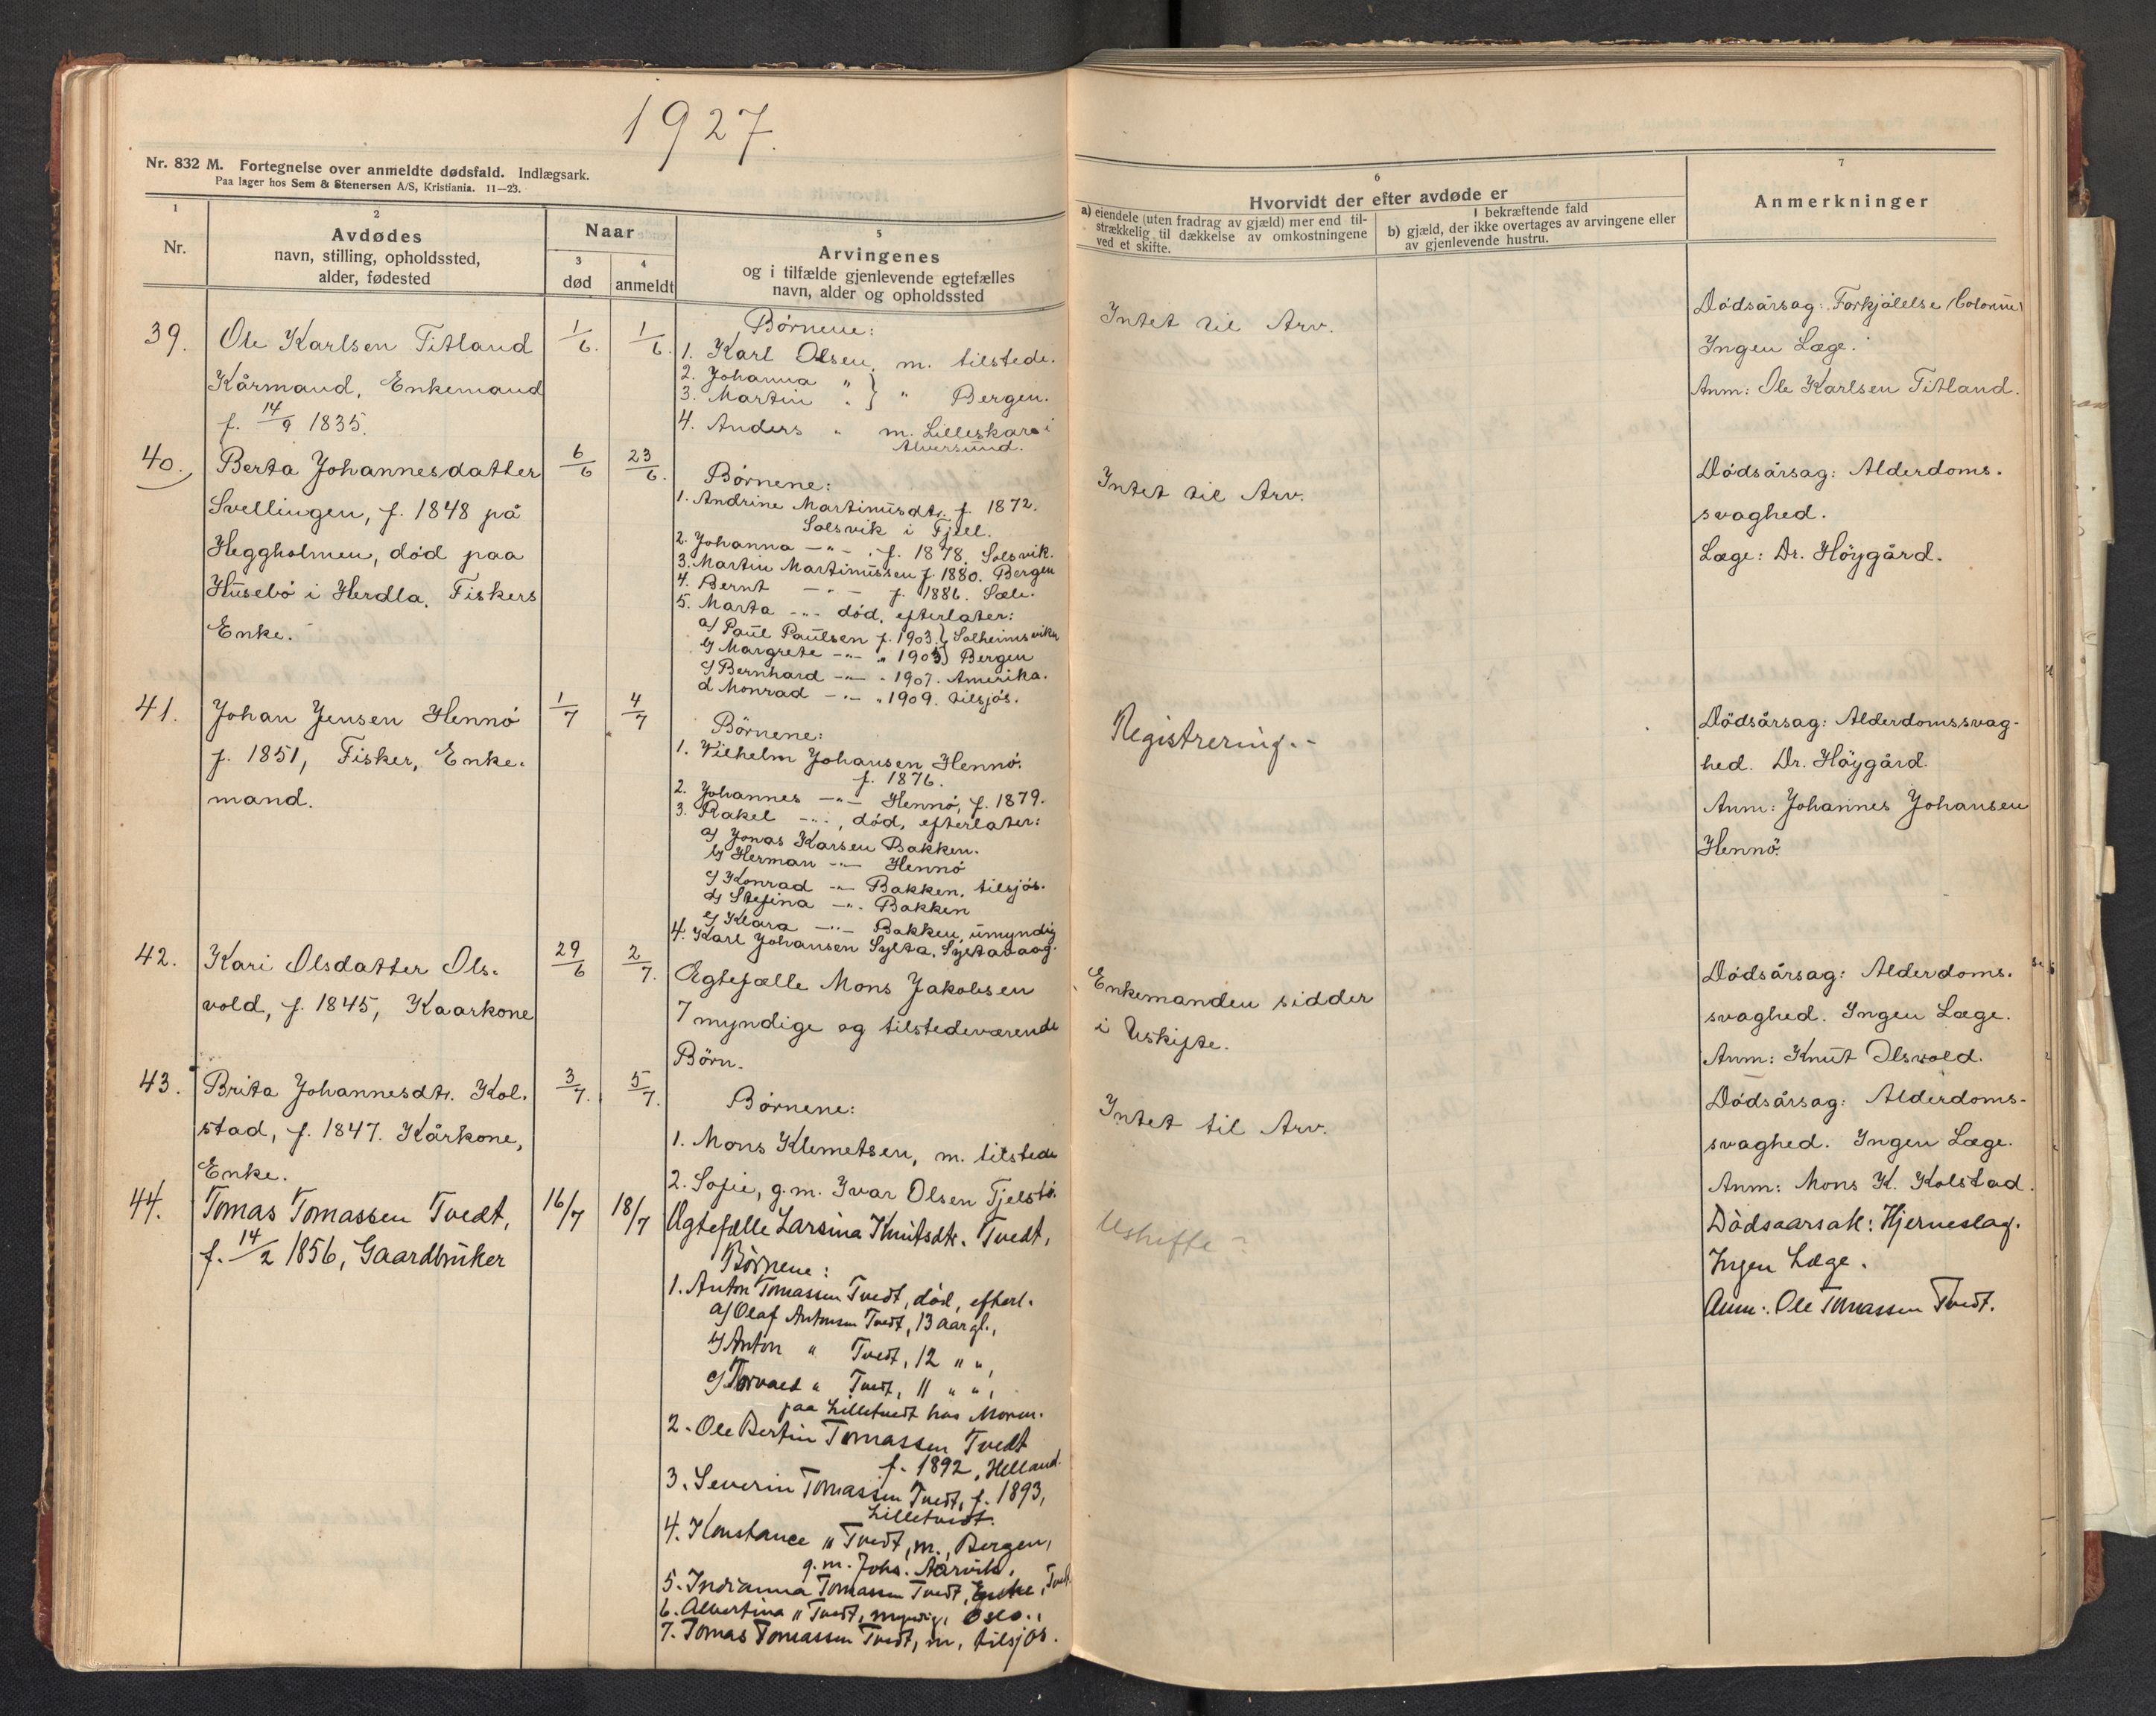 1927.
Nr. 832 M. Fortegnelse over anmeldte dødsfald. Indlægsark.
Paa lager hos Sem & Stenersen A/S, Kristiania. 11—23.
1
Nr.
2
Avdødes
navn, stilling, opholdssted,
alder, fødested
Naar
3
død
4
anmeldt
5
Arvingenes
og i tilfælde gjenlevende egtefælles
navn, alder og opholdssted
6
Hvorvidt der efter avdøde er
a) eiendele (uten fradrag av gjæld) mer end til-
strækkelig til dækkelse av omkostningene
ved et skifte.
I bekræftende fald
b) gjæld, der ikke overtages av arvingene eller
av gjenlevende hustru.
7
Anmerkninger
39.
Ole Karlsen Titland
Kårmand, Enkemand
f. 14/9 1835.
1/6.
1/6.
Børnene:
1. Karl Olsen, m. tilstede.
2. Johanna "
3. Martin " } " Bergen.
4. Anders " m. Lilleskare i
Alversund.
Intet til Arv.
Dødsårsag: Forkjølelse
Ingen Læge.
Anm: Ole Karlsen Titland.
40.
Berta Johannesdatter
Svellingen, f. 1848 på
Heggholmen, død paa
Husebø i Herdla. Fiskers
Enke.
6/6
23/6.
Børnene:
1. Andrine Martinusdtr. f. 1872.
Solsvik i Fjell.
2. Johanna —"— f. 1878. Solsvik.
3. Martin Martinussen f. 1880. Bergen
4. Bernt —"— f. 1886. Sæle.
5. Marta —"— død, efterlater:
a) Paul Paulsen f. 1903. } Solheimsviken
b) Margrete —"— " 1905 } Bergen
c) Bernhard —"— " 1907. Amerika.
d Monrad —"— " 1909. tilsjøs.
Intet til Arv.
Dødsårsag: Alderdoms-
svaghed.
Læge: Dr. Höygård.
41.
Johan Jensen Hennø
f. 1851, Fisker, Enke-
mand.
1/7
4/7
Børnene:
1. Vilhelm Johansen Hennø.
f. 1876.
2. Johannes —"— Hennø, f. 1879.
3. Rakel —"—, død, efterlater:
a) Jonas Karsen Bakken.
b) Herman —"— Hennø
c) Konrad —"— Bakken, tilsjøs.
d) Stefina —"— Bakken
e) Klara —"— Bakken, umyndig
4. Karl Johansen Sylta,
Registrering.-
Dødsårsag: Alderdomssvag-
hed. Dr. Höygård.
Anm: Johannes Johansen
Hennö.
42.
Kari Olsdatter Ols-
vold, f. 1845, Kaarkone
29/6
2/7.
Ægtefælle Mons Jakobsen
7 myndige og tilstedeværende
Börn.
Enkemanden sidder
i Uskifte.
Dødsårsag: Alderdoms-
svaghed. Ingen Læge.
Anm: Knut Olsvold.
43.
Brita Johannesdtr. Kol-
stad, f. 1847. Kårkone,
Enke.
3/7.
5/7.
Børnene:
1. Mons Klemetsen, m. tilstede
2. Sofie, g.m. Ivar Olsen Tjelstö.
Intet til Arv.
Dødsårsag: Alderdoms-
svaghed. Ingen Læge.
Anm: Mons K. Kolstad.
44.
Tomas Tomassen Tvedt,
f. 14/2 1856, Gaardbruker
16/7
18/7
Ægtefælle Larsina Knutsdtr. Tvedt,
Børnene:
1. Anton Tomassen Tvedt, død, efterl.
a) Olaf Antonsen Tvedt, 13 aar gl.,
b) Anton " Tvedt, 12 " ",
c) Torvald " Tvedt, 11 " ",
paa Lilletvedt hos Moren.
2. Ole Bertin Tomassen Tvedt
f. 1892, Helland.
3. Severin Tomassen Tvedt, f. 1893,
Lilletvedt.
4. Konstance " Tvedt, m., Bergen,
g.m. Johs. Aarvik,
5. Indianna Tomassen Tvedt, Enke,
6. Albertina " Tvedt, myndig, Oslo.,
7. Tomas Tomassen Tvedt, m, tilsjøs.
Uskifte
Dødsaarsak: Hjerneslag.
Ingen Læge.
Anm: Ole Tomassen Tvedt.